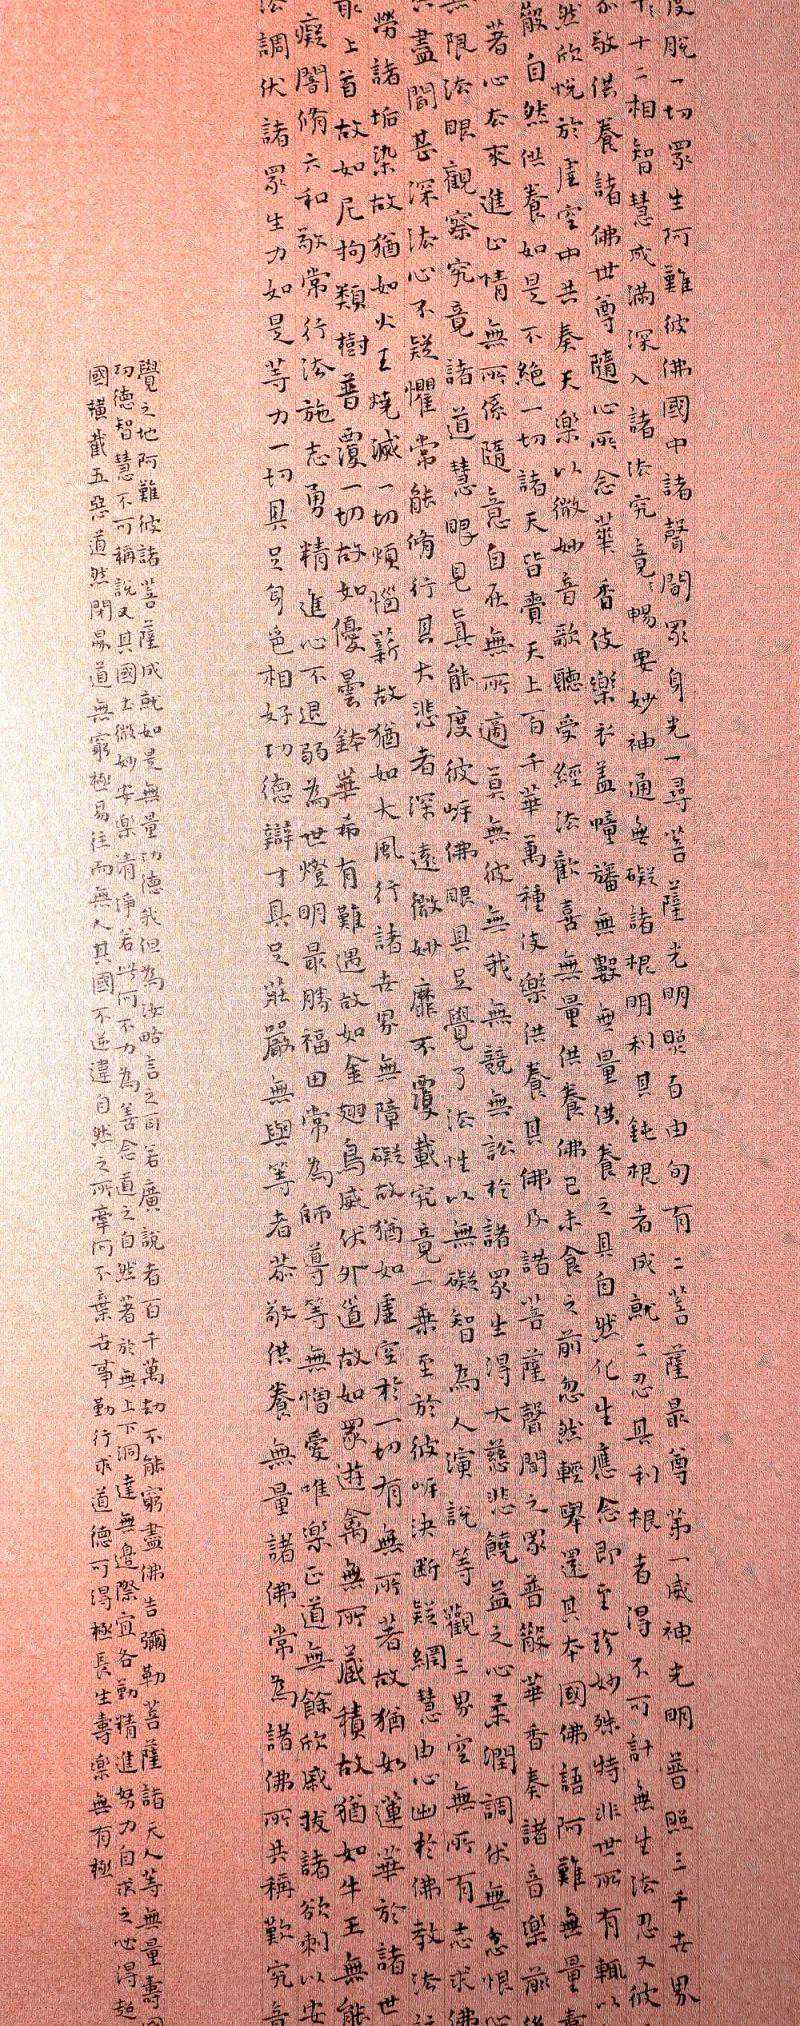 度脫一切眾生阿難彼佛國中諸聲聞眾身光一尋菩薩光明照百由旬有二菩薩最尊第一威神光明普照三千世界
十二相智慧成滿深入諸法究竟暢要妙神通無礙諸根明利其鈍根者成就二忍其利根者得不可計無生法忍又彼
恭敬供養諸佛世尊隨心所念華香伎樂衣蓋幢幡無數無量供養之具自然化生應念即至珍妙殊特非世所有輒以
然欣悅於虛空中共奏天樂以微妙音歌聽受經法歡喜無量供養佛已未食之前忽然輕舉還其本國佛語阿難無量壽
散自然供養如是不絕一切諸天皆齎天上百千華萬種伎樂供養其佛及諸菩薩聲聞之眾普散華香奏諸音樂前後
著心去來進止情無所係隨意自在無所適莫無彼無我無競無訟於諸眾生得大慈悲饒益之心柔潤調伏無忿恨心
無限法眼觀察究竟諸道慧眼見真能度彼岸佛眼具足覺了法性以無礙智為人演說等觀三界空無所有志求佛
盡聞甚深法心不疑懼常能脩行其大悲者深遠微妙靡不覆載究竟一乘至於彼岸決斷疑網慧由心出於佛教法
勞諸垢染故猶如火王燒滅一切煩惱薪故猶如大風行諸世界無障礙故猶如虛空於一切有無所著故猶如蓮華於諸世
上首故如尼拘類樹普覆一切故如優曇鉢華希有難遇故如金翅鳥威伏外道故如眾遊禽無所藏積故猶如牛王無能
癡闇脩六和敬常行法施志勇精進心不退弱為世燈明最勝福田常為師導等無憎愛唯樂正道無餘欣戚拔諸欲刺以安
法調伏諸眾生力如是等力一切具足身色相好功德辯才具足莊嚴無與等者恭敬供養無量諸佛常為諸佛所共稱歎究竟
覺之地阿難彼諸菩薩成就如是無量功德我但為汝略言之耳若廣說者百千萬劫不能窮盡佛告彌勒菩薩諸天人等無量壽國
功德智慧不可稱說又其國土微妙安樂清淨若此何不力為善念道之自然著於無上下洞達無邊際宜各勤精進努力自求之必得超
國橫截五惡道自然閉昇道無窮極易往而無人其國不逆違自然之所牽何不棄世事勤行求道德可得極長生壽樂無有極